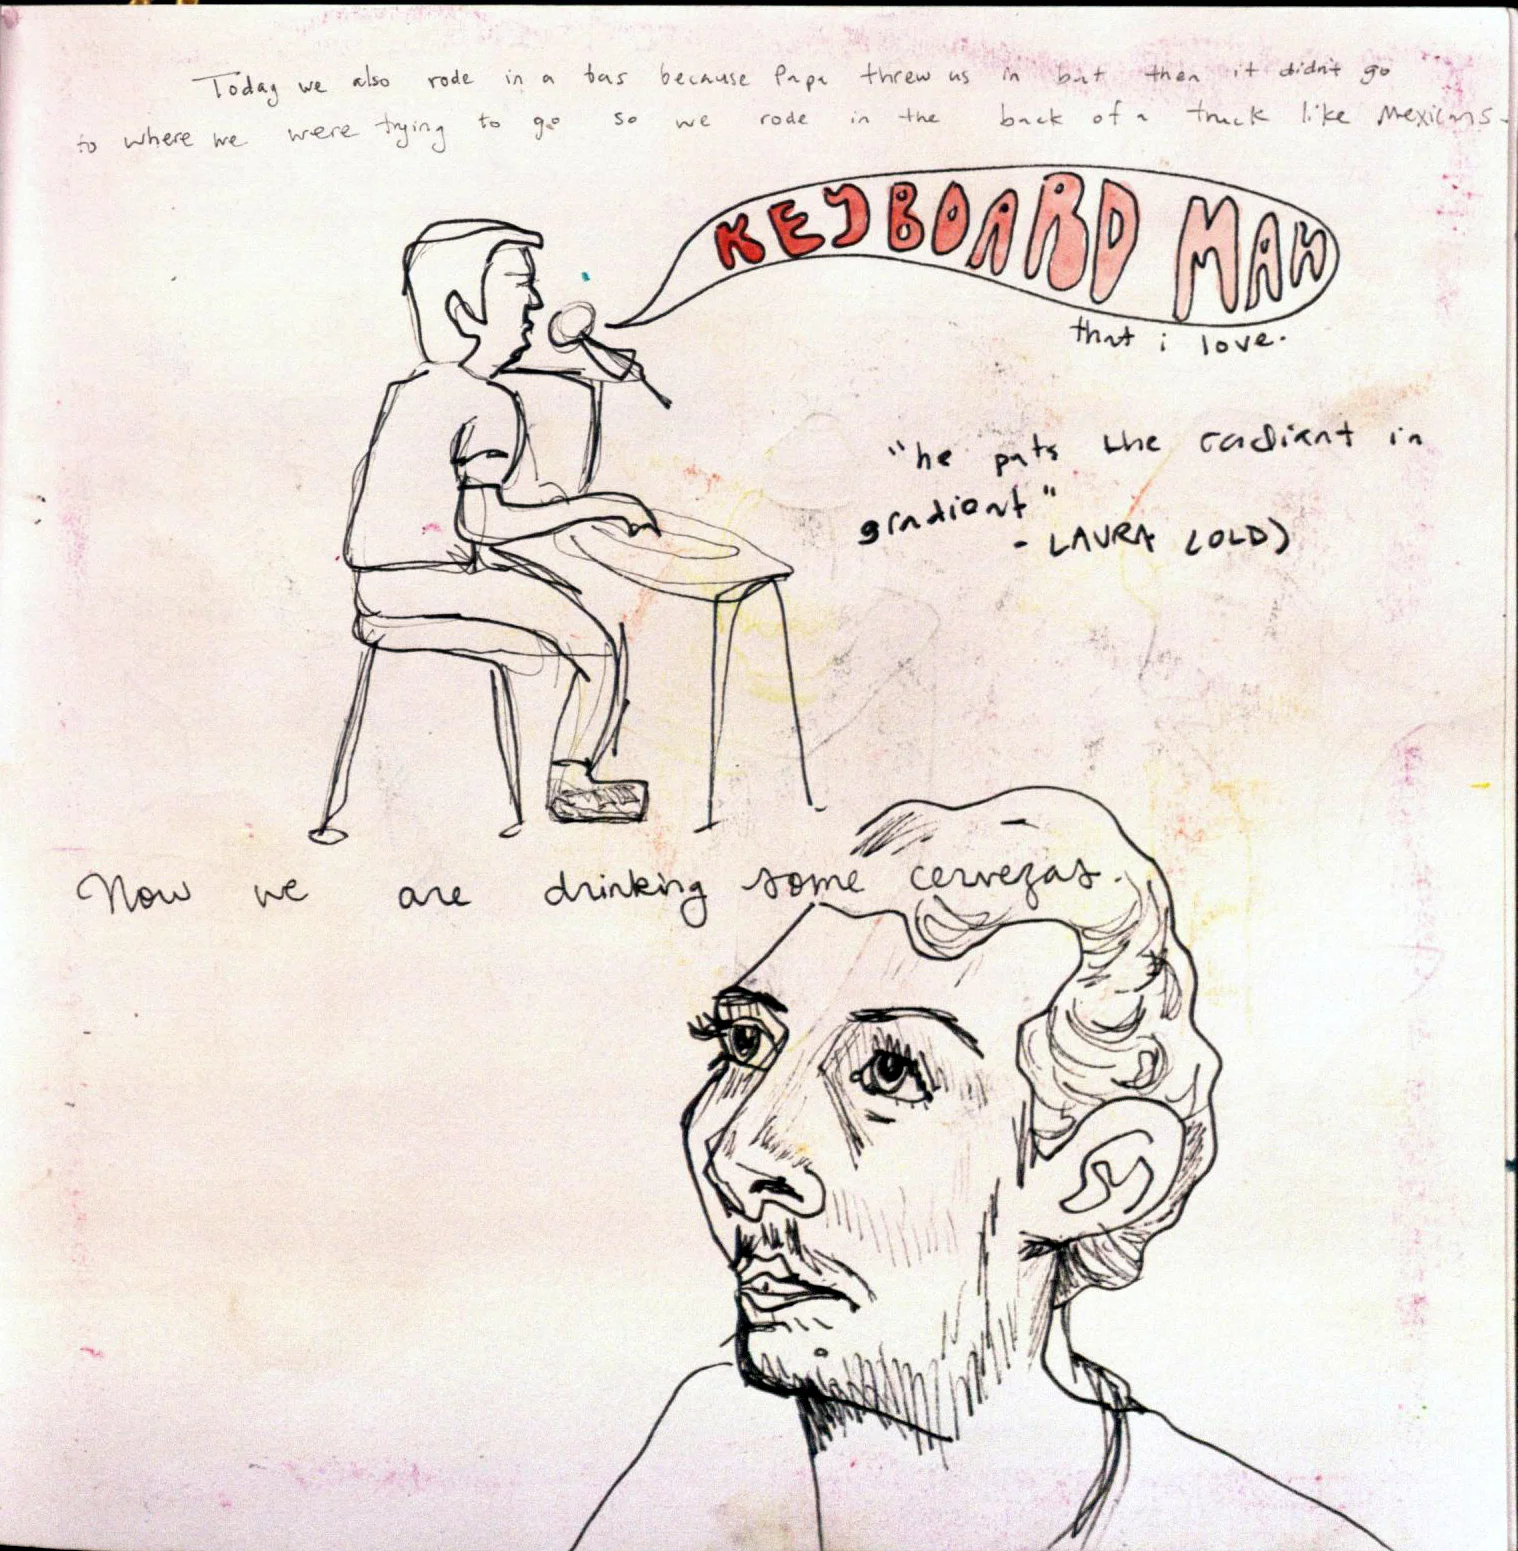 Today we also rode in a bus because Papa threw us in but then it didn't go
to where we were trying to go so we rode in the back of a truck like Mexicans.
KEYBOARD MAN
that i love.
"he puts the radiant in
gradient"
- LAURA (OLD)
Now we are drinking some cervezas.